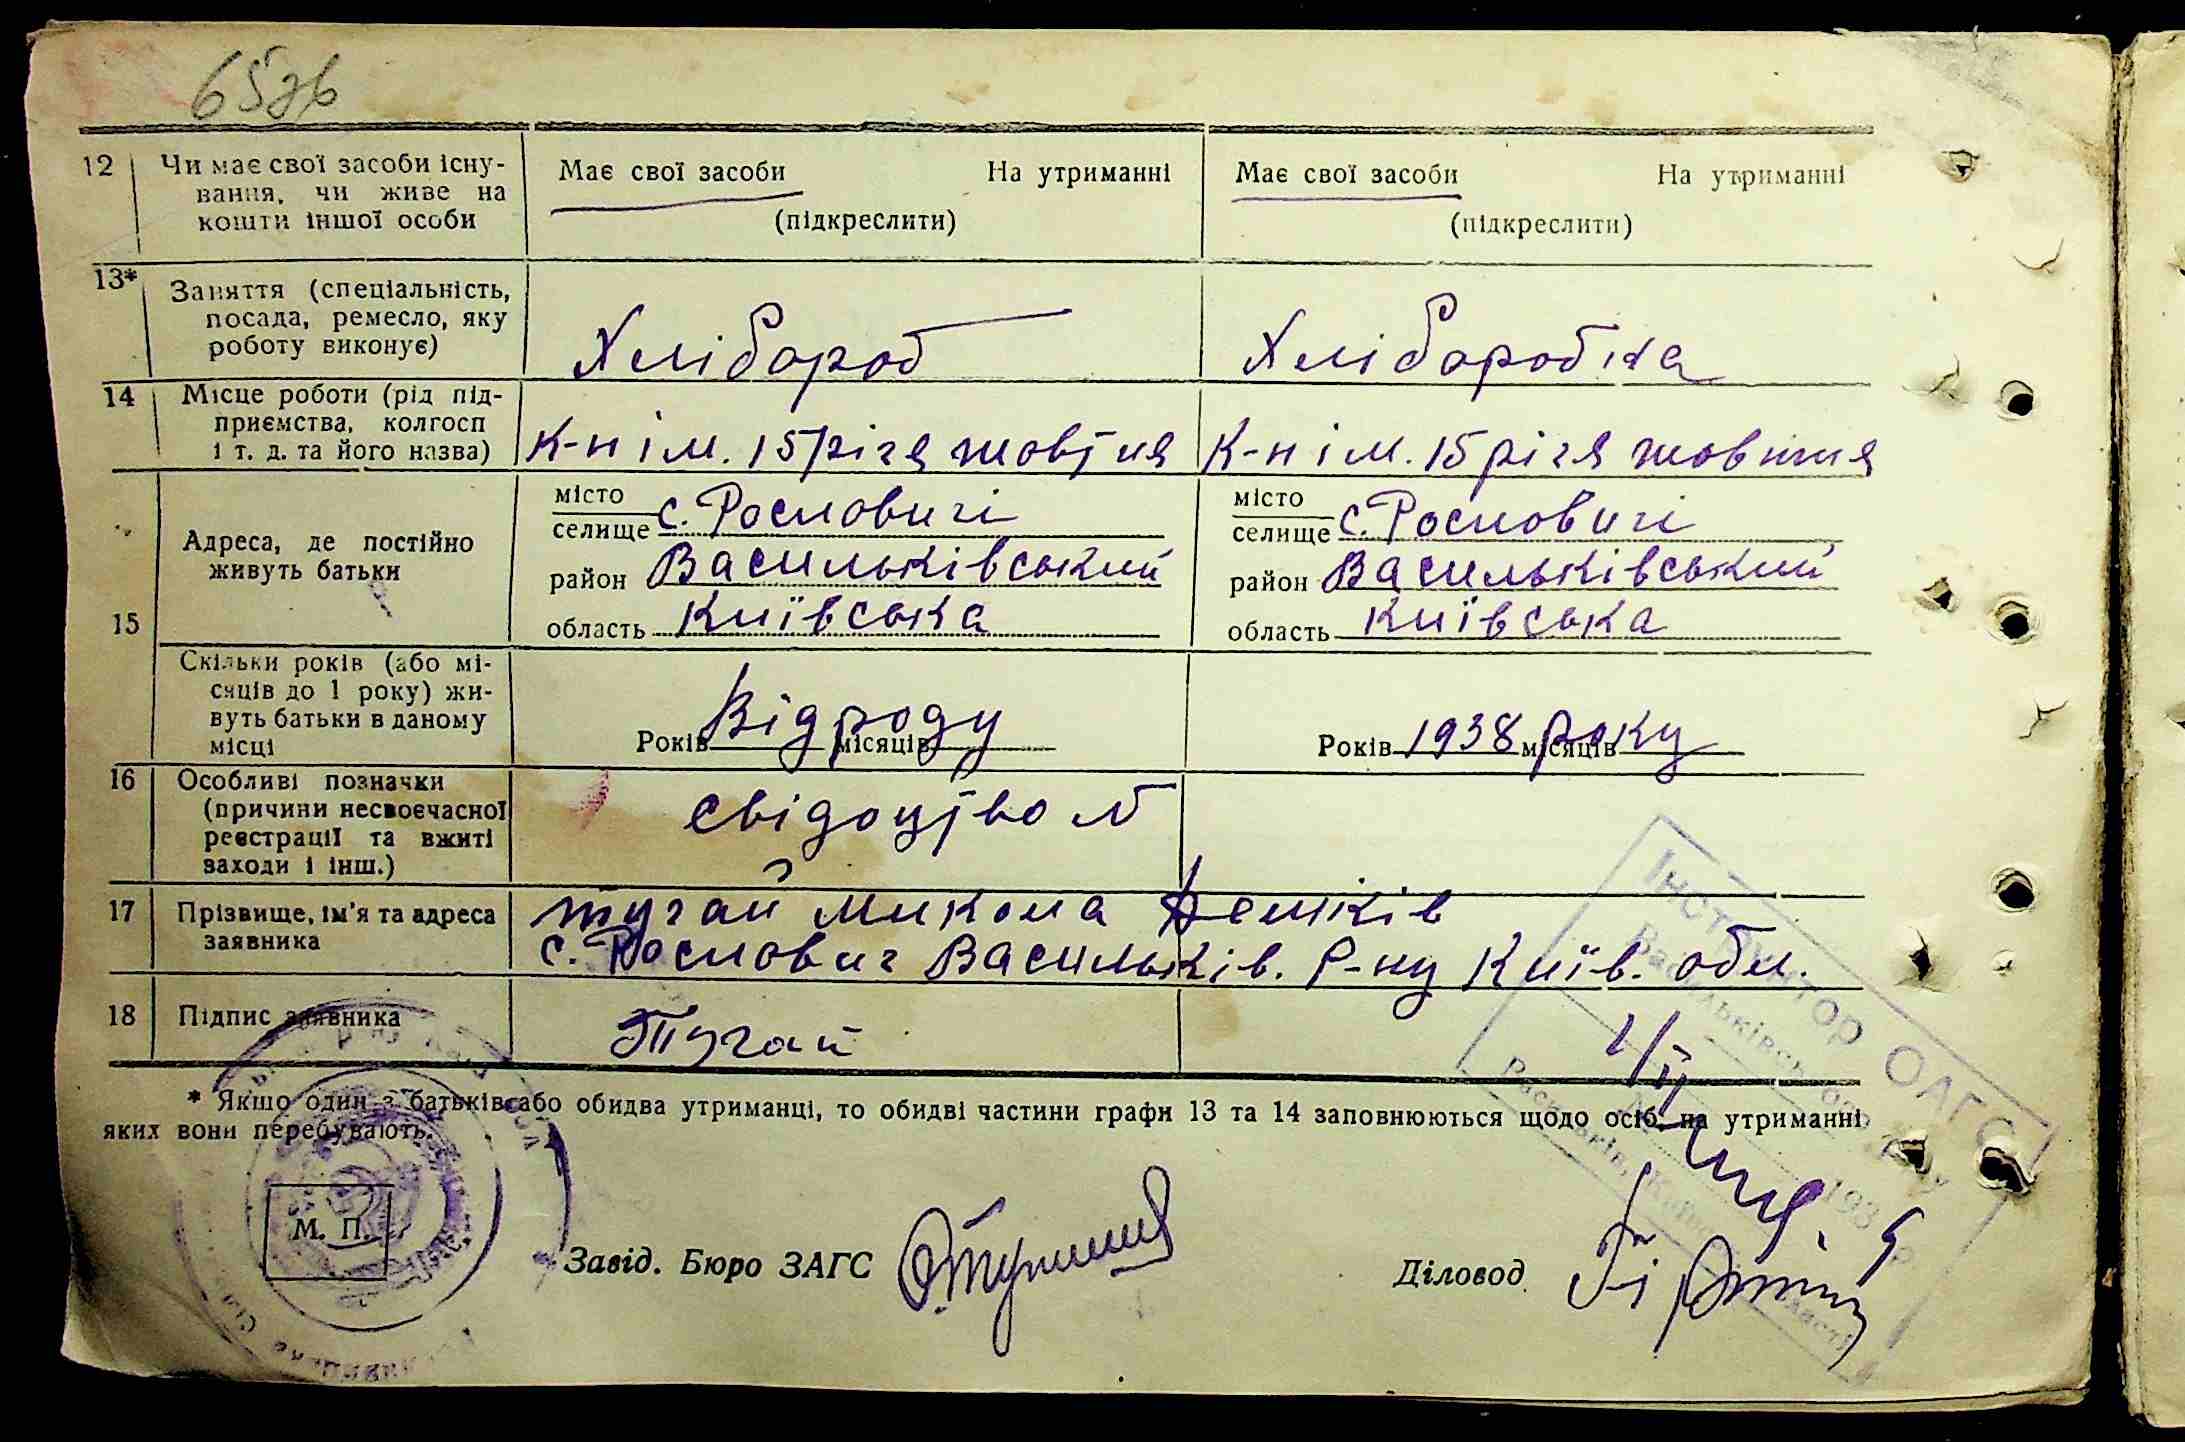 65зв
12 Чи має свої засоби існу-
вання, чи живе на
кошти іншої особи
Має свої засоби На утриманні
(підкреслити)
Має свої засоби На утриманні
(підкреслити)
13* Заняття (спеціальність,
посада, ремесло, яку
роботу виконує)
Хлібороб
Хліборобка
14 Місце роботи (рід під-
приємства, колгосп
і т. д. та його назва)
К-п ім. 15 річя жовтня
К-п ім. 15 річя жовтня
15 Адреса, де постійно
живуть батьки
місто
селище с. Рословичі
район Васильківський
область Київська
місто
селище с. Рословичі
район Васильківський
область Київська
Скільки років (або мі-
сяців до 1 року) жи-
вуть батьки в даному
місці
Років Відроду місяців
Років 1938 року місяців
16 Особливі позначки
(причини несвоєчасної
реєстрації та вжиті
заходи і інш.)
свідоцтво №
17 Прізвище, ім'я та адреса
заявника
Тугай Микола
с. Рослович Васильків. р-ну Київ. обл.
18 Підпис заявника
Тугай
* Якщо один з батьків або обидва утриманці, то обидві частини графи 13 та 14 заповнюються щодо осіб, на утриманні
яких вони перебувають.
М. П.
Завід. Бюро ЗАГС
Діловод
Інструктор ОАГС
Васильківського